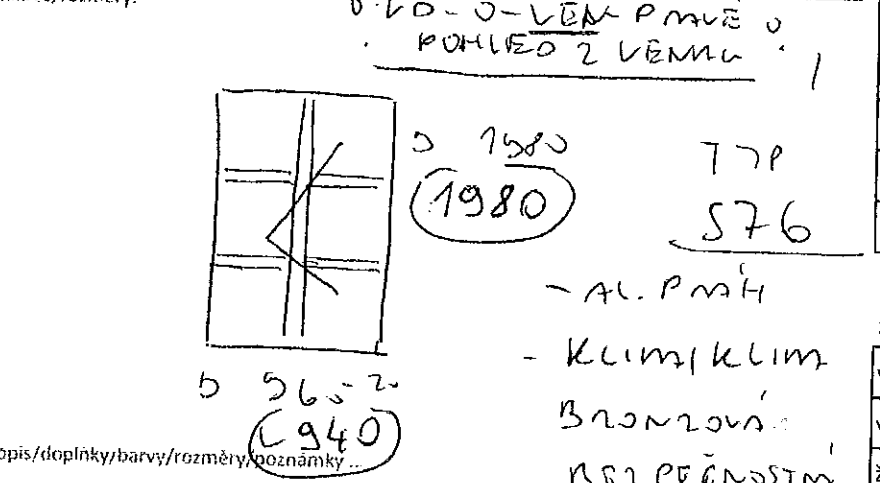 VEN PRAVÉ
POHLED Z VENKU !
1980
1980
TYP
S76
- AL. PRÁH
- KLIM/KLIM
BRONZOVÁ
BEZPEČNOSTNÍ
960 - 20
940
opis/doplňky/barvy/rozměry/poznámky ...